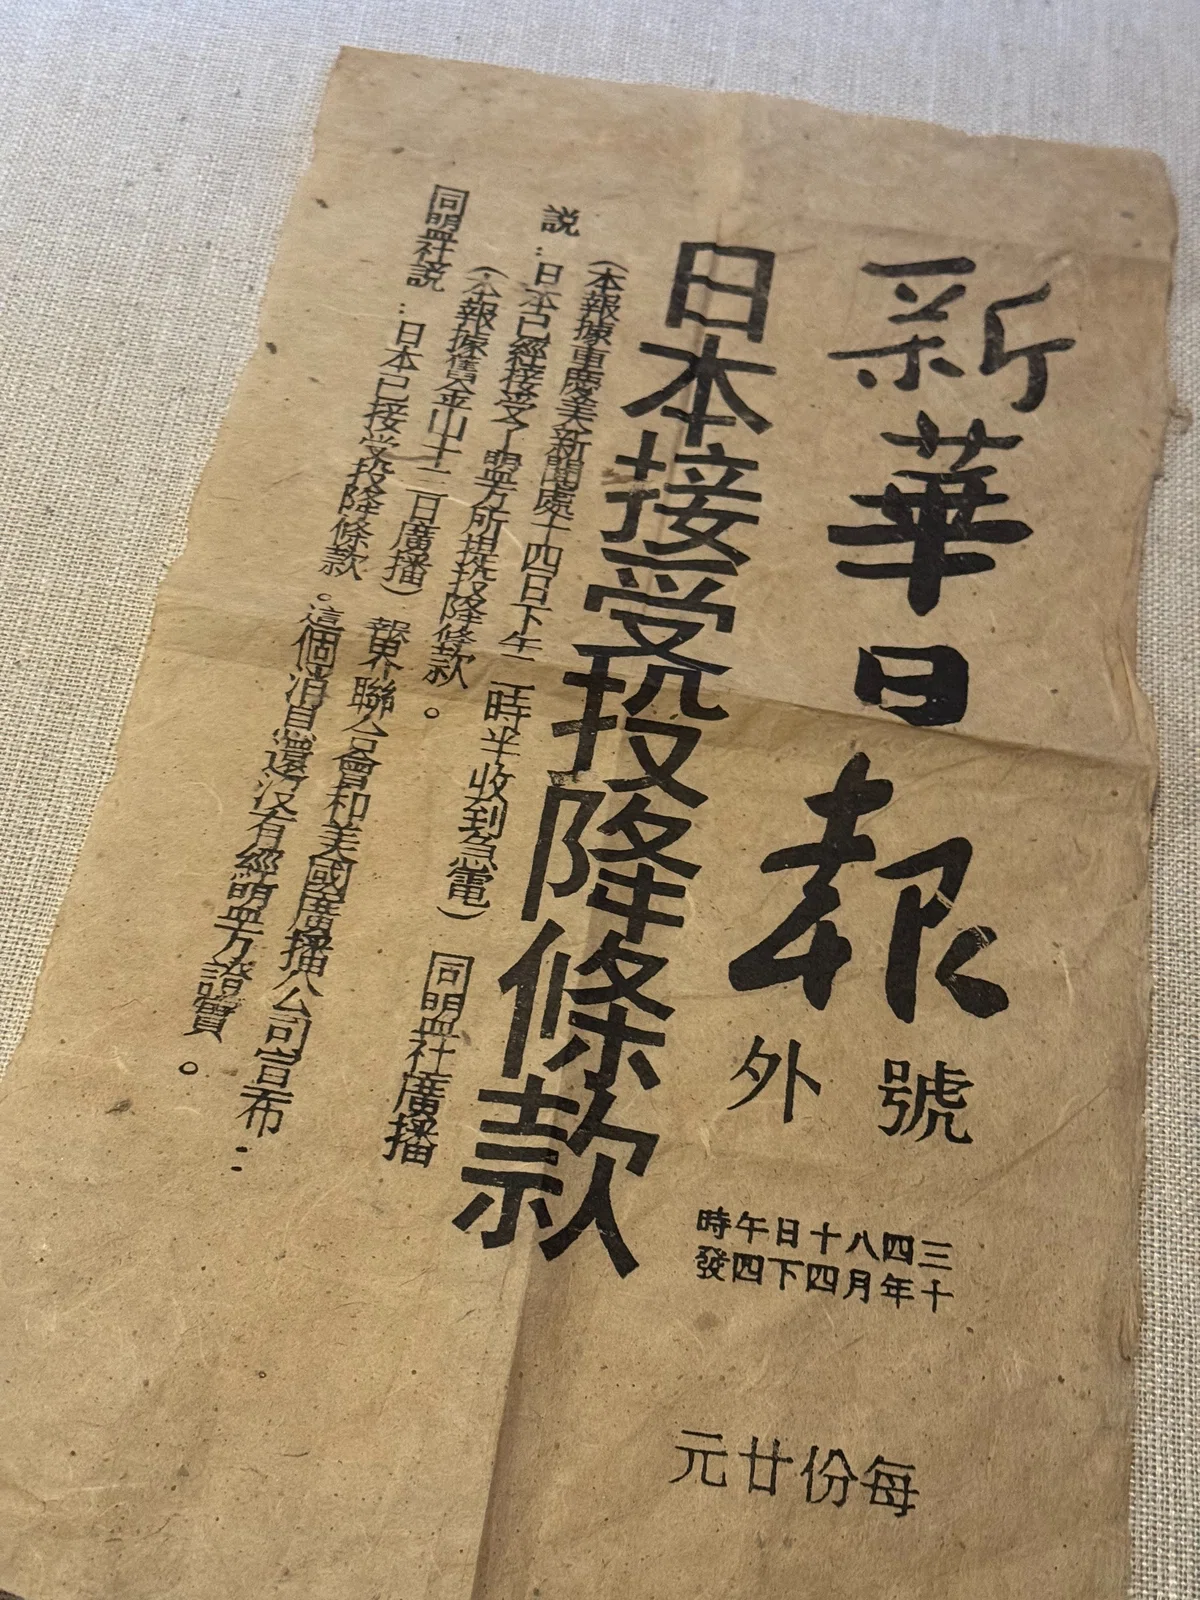 新華日報
號外
三十四年八月十四日下午四時發
每份廿元
日本接受投降條款
(本報據重慶美新聞處十四日下午二時半收到急電) 同盟社廣播
説:日本已經接受了盟方所提投降條款。
(本報據舊金山十三日廣播) 報界聯合會和美國廣播公司宣布:
同盟社説:日本已接受投降條款。這個消息還沒有經盟方證實。